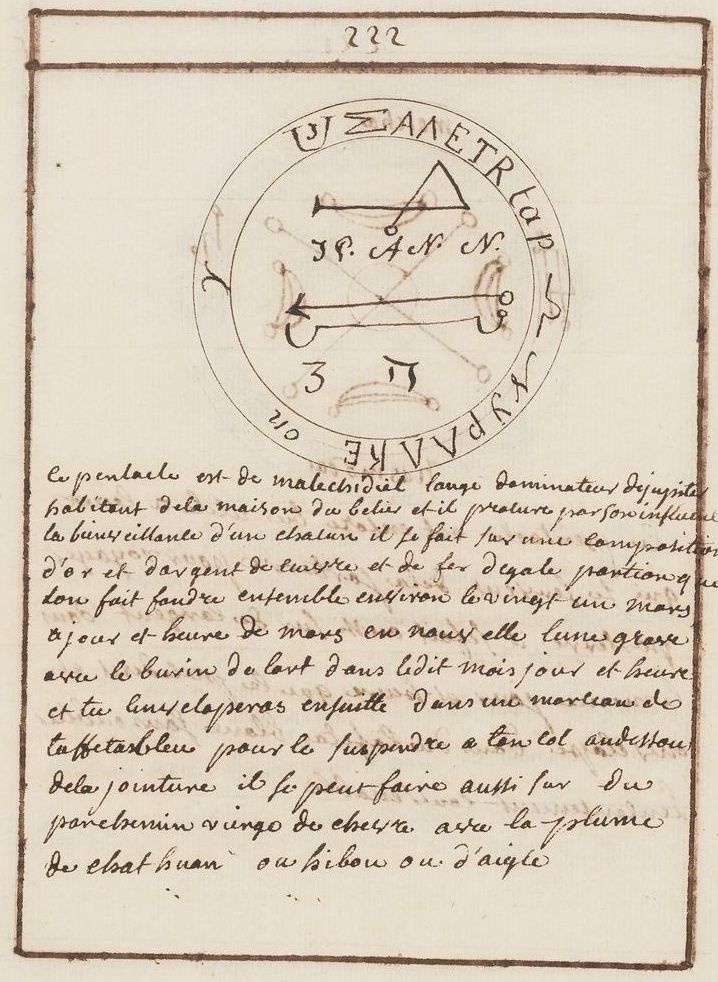 222
ΣΑΛΕΤRιap
JP. AN. N.
3 ה
ce pentacle est de malechidiel lange dominateur dejupiter
habitant dela maison du belier et il procure par son influence
la bienveillance d'un chacun il se fait sur une composition
d'or et d'argent de cuivre et de fer degale portion que
lon fait fondre ensemble environ le vingt un mars
a jour et heure de mars en nouvelle lune grave
avec le burin de lart dans ledit mois jour et heure
et tu lenveloperas ensuitte dans un morceau de
taffetas bleu pour le suspendre a ton col audessous
dela jointure il se peut faire aussi sur du
parchemin vierge de chevre avec la plume
de chat huan ou hibou ou d'aigle